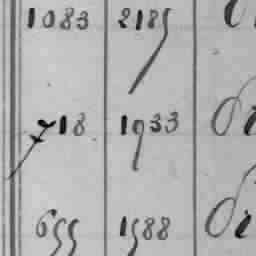 1083 2185
718 1933
655 1588